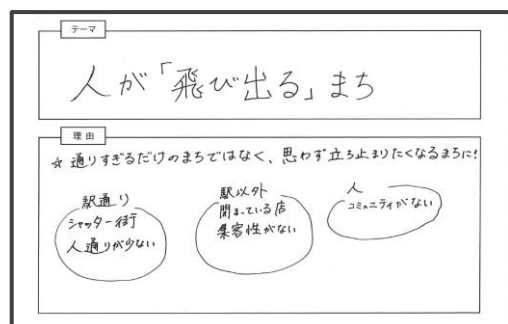 テーマ
人が「飛び出る」まち
理由
☆通りすぎるだけのまちではなく、思わず立ち止まりたくなるまちに!
駅通り
シャッター街
人通りが少ない
駅以外
閉まっている店
集客性がない
人
コミュニティがない